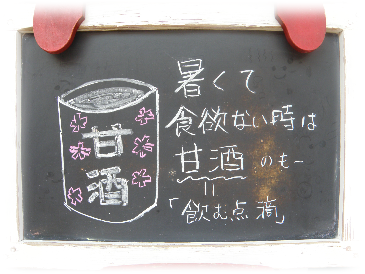 甘酒
暑くて
食欲ない時は
甘酒 のもー
=
「飲む点滴」